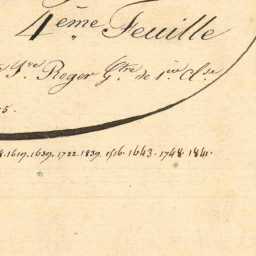 4ème Feuille
Sre Roger Gtre de 1ère Clse
5.
8.1619.1639.1722.1839.1516.1643.1748.1841.